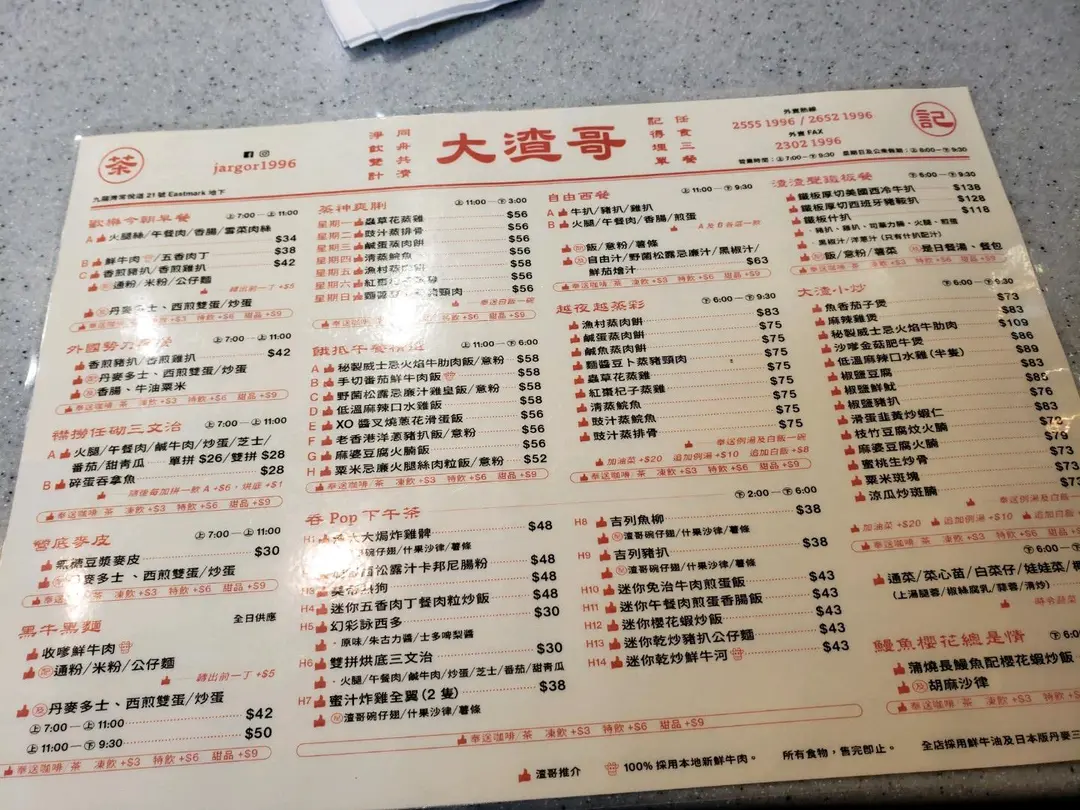 茶
jargor1996
九龍灣常悅道 21 號 Eastmark 地下
同舟共濟
淨飲雙計
大渣哥
任食三餐
記得埋單
外賣熱線
2555 1996 / 2652 1996
外賣 FAX
2302 1996
營業時間：上 7:00－下 9:30 星期日及公眾假期：上 8:00－下 9:30
記
歎樂今朝早餐 上 7:00－上 11:00
A 火腿絲/午餐肉/香腸/雪菜肉絲
$34
B 鮮牛肉/五香肉丁 $38
C 香煎豬扒/香煎雞扒 $42
配 通粉/米粉/公仔麵
轉出前一丁 +$5
配 丹麥多士、西煎雙蛋/炒蛋
奉送咖啡/茶 凍飲 +$3 特飲 +$6 甜品 +$9
外國勢力
上 7:00－上 11:00
香煎豬扒/香煎雞扒 $42
配 丹麥多士、西煎雙蛋/炒蛋
配 香腸、牛油粟米
奉送咖啡/茶 凍飲 +$3 特飲 +$6 甜品 +$9
襟撈任砌三文治 上 7:00－上 11:00
A 火腿/午餐肉/鹹牛肉/炒蛋/芝士/
番茄/甜青瓜 單拼 $26/雙拼 $28
B 碎蛋吞拿魚 $28
請後每加拼一款 A +$6，烘底 +$1
奉送咖啡/茶 凍飲 +$3 特飲 +$6 甜品 +$9
營底麥皮 上 7:00－上 11:00
黑糖豆漿麥皮 $30
配 丹麥多士、西煎雙蛋/炒蛋
奉送咖啡/茶 凍飲 +$3 特飲 +$6 甜品 +$9
黑牛黑麵 全日供應
收嗲鮮牛肉
配 通粉/米粉/公仔麵
轉出前一丁 +$5
配 丹麥多士、西煎雙蛋/炒蛋
上 7:00－上 11:00 $42
上 11:00－下 9:30 $50
奉送咖啡/茶 凍飲 +$3 特飲 +$6 甜品 +$9
蒸神爽脷 上 11:00－下 3:00
星期一 蟲草花蒸雞 $56
星期二 豉汁蒸排骨 $56
星期三 鹹蛋蒸肉餅 $56
星期四 清蒸鯇魚 $56
星期五 漁村蒸肉餅 $56
星期六 紅棗杞子蒸雞 $56
星期日 麵醬豆卜蒸豬頸肉 $56
奉送白飯一碗
奉送咖啡/茶 凍飲 +$3 特飲 +$6 甜品 +$9
上 11:00－下 6:00
A 秘製威士忌火焰牛肋肉飯/意粉 $58
B 手切番茄鮮牛肉飯 $58
C 野菌松露忌廉汁雞皇飯/意粉 $58
D 低溫麻辣口水雞飯 $58
E XO 醬叉燒蔥花滑蛋飯 $56
F 老香港洋蔥豬扒飯/意粉 $56
G 麻婆豆腐火腩飯 $56
H 粟米忌廉火腿絲肉粒飯/意粉 $52
奉送咖啡/茶 凍飲 +$3 特飲 +$6 甜品 +$9
吞 Pop 下午茶 下 2:00－下 6:00
H1 大大焗炸雞髀 $48
配 渣哥碗仔翅/什果沙律/薯條
松露汁卡邦尼腸粉 $48
熱狗 $48
H4 迷你五香肉丁餐肉粒炒飯 $48
H5 幻彩詠西多 $30
．原味/朱古力醬/士多啤梨醬
H6 雙拼烘底三文治 $30
．火腿/午餐肉/鹹牛肉/炒蛋/芝士/番茄/甜青瓜
H7 蜜汁炸雞全翼 (2 隻) $38
配 渣哥碗仔翅/什果沙律/薯條
H8 吉列魚柳 $38
配 渣哥碗仔翅/什果沙律/薯條
H9 吉列豬扒 $38
配 渣哥碗仔翅/什果沙律/薯條
H10 迷你免治牛肉煎蛋飯 $43
H11 迷你午餐肉煎蛋香腸飯 $43
H12 迷你櫻花蝦炒飯 $43
H13 迷你乾炒豬扒公仔麵 $43
H14 迷你乾炒鮮牛河 $43
奉送咖啡/茶 凍飲 +$3 特飲 +$6 甜品 +$9
自由西餐 上 11:00－下 9:30
A 牛扒/豬扒/雞扒
B 火腿/午餐肉/香腸/煎蛋
A 及 B 各選一款
配 飯/意粉/薯條
配 自由汁/野菌松露忌廉汁/黑椒汁/
鮮茄燴汁 $63
奉送咖啡/茶 凍飲 +$3 特飲 +$6 甜品 +$9
越夜越蒸彩 下 6:00－下 9:30
漁村蒸肉餅 $83
鹹蛋蒸肉餅 $75
鹹魚蒸肉餅 $75
麵醬豆卜蒸豬頸肉 $75
蟲草花蒸雞 $75
紅棗杞子蒸雞 $75
清蒸鯇魚 $75
豉汁蒸鯇魚 $75
豉汁蒸排骨 $75
奉送例湯及白飯一碗
加油菜 +$20 追加例湯 +$10 追加白飯 +$8
奉送咖啡/茶 凍飲 +$3 特飲 +$6 甜品 +$9
渣渣聲鐵板餐 下 6:00－下 9:30
鐵板厚切美國西冷牛扒 $138
鐵板厚切西班牙豬鞍扒 $128
鐵板什扒 $118
．豬扒、雞扒、司華力腸、火腿、煎蛋
．黑椒汁/洋蔥汁 (只有什扒配汁)
配 飯/意粉/薯菜 配 是日餐湯、餐包
奉送咖啡/茶 凍飲 +$3 特飲 +$6 甜品 +$9
大渣小炒 下 6:00－下 9:30
魚香茄子煲 $73
麻辣雞煲 $83
秘製威士忌火焰牛肋肉 $109
沙嗲金菇肥牛煲 $86
低溫麻辣口水雞 (半隻) $89
椒鹽豆腐 $83
椒鹽鮮魷
椒鹽豬扒 $76
滑蛋韭黃炒蝦仁 $83
枝竹豆腐炆火腩
麻婆豆腐火腩 $79
蜜桃生炒骨 $73
粟米斑塊 $73
涼瓜炒斑腩
奉送例湯及白飯
加油菜 +$20 追加例湯 +$10 追加白
奉送咖啡/茶 凍飲 +$3 特飲 +$6 甜品
下 6:00－下
通菜/菜心苗/白菜仔/娃娃菜/
(上湯腿蓉/椒絲腐乳/蒜蓉/清炒)
時令蔬菜
鰻魚櫻花總是情 下 6:0
蒲燒長鰻魚配櫻花蝦炒飯
配 胡麻沙律
奉送咖啡/茶 凍飲 +$3 特飲 +$6 甜品
渣哥推介
100% 採用本地新鮮牛肉。
所有食物，售完即止。
全店採用鮮牛油及日本版丹麥三